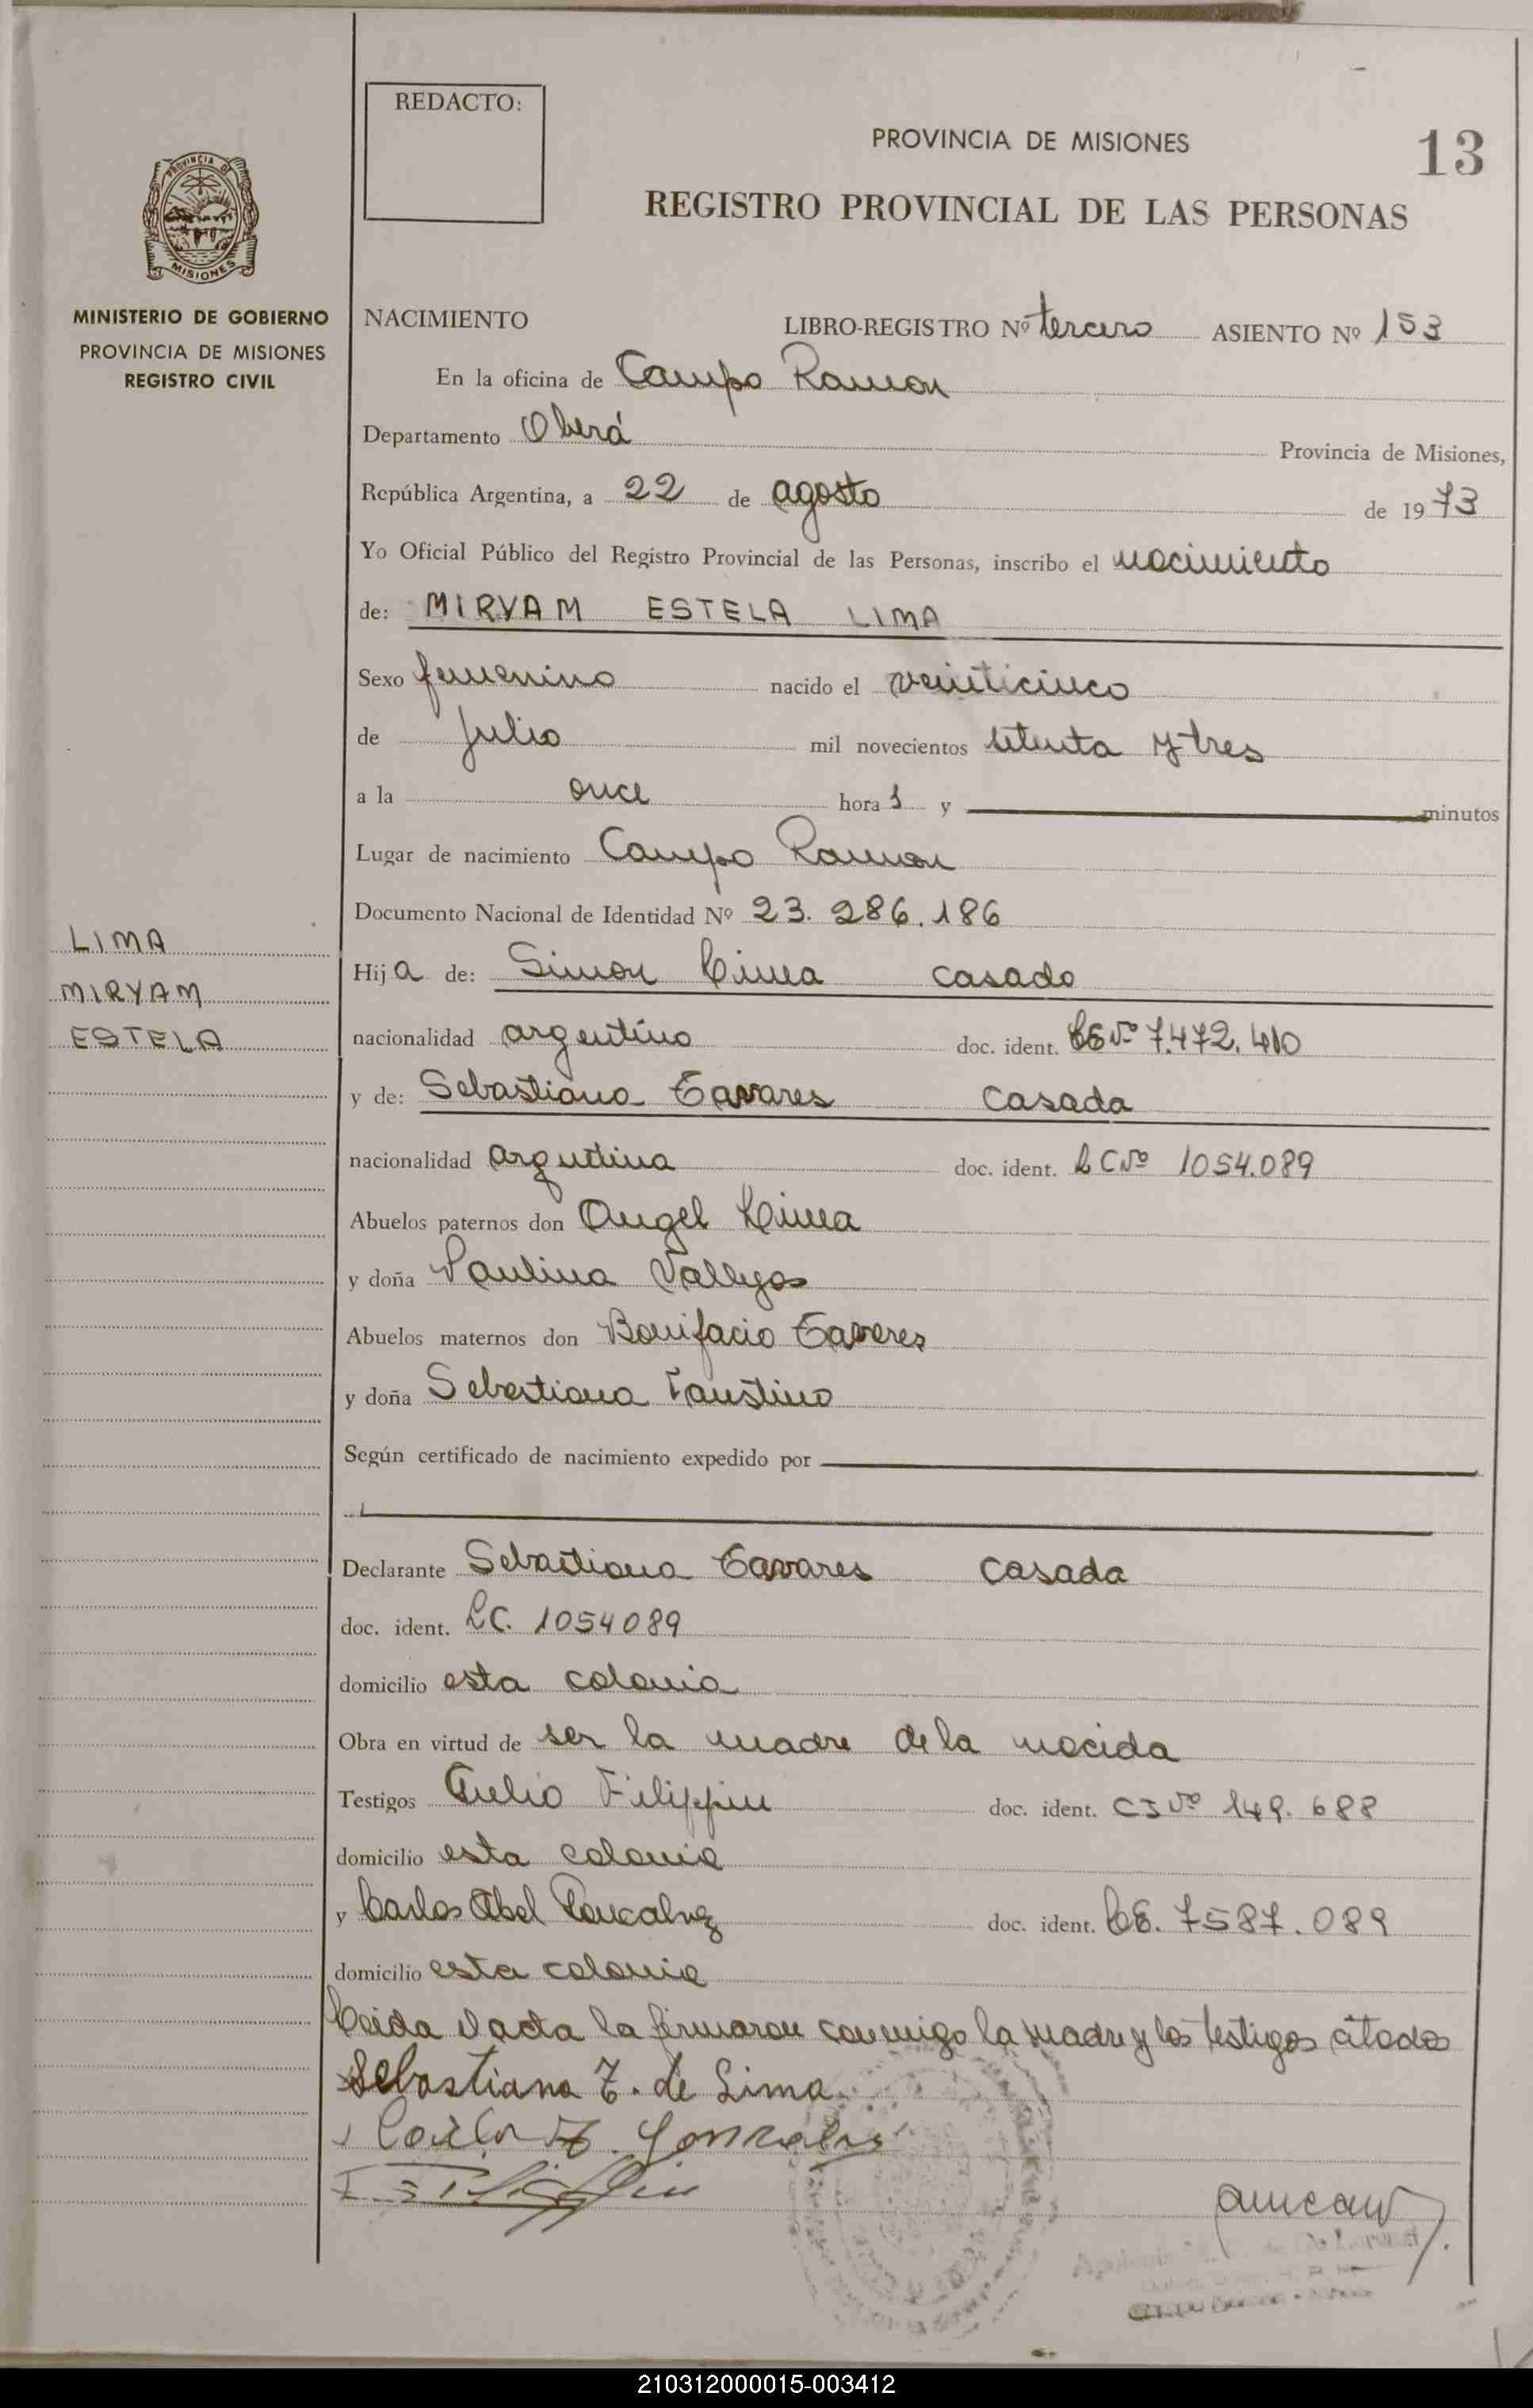 REDACTO:
PROVINCIA DE MISIONES
13
REGISTRO PROVINCIAL DE LAS PERSONAS
PROVINCIA DE
MISIONES
MINISTERIO DE GOBIERNO
PROVINCIA DE MISIONES
REGISTRO CIVIL
NACIMIENTO LIBRO-REGISTRO Nº tercero ASIENTO Nº 153
En la oficina de Campo Ramon
Departamento Oberá Provincia de Misiones,
República Argentina, a 22 de agosto de 1973
Yo Oficial Público del Registro Provincial de las Personas, inscribo el nacimiento
de: MIRYAM ESTELA LIMA
Sexo femenino nacido el veinticinco
de Julio mil novecientos setenta y tres
a la once hora s y minutos
Lugar de nacimiento Campo Ramon
Documento Nacional de Identidad Nº 23.286.186
LIMA
MIRYAM
ESTELA
Hija de: Simon Lima casado
nacionalidad argentino doc. ident. LE Nº 7.472.410
y de: Sebastiana Tavares casada
nacionalidad argentina doc. ident. LC Nº 1054.089
Abuelos paternos don Angel Lima
y doña Paulina Vallejos
Abuelos maternos don Bonifacio Taveres
y doña Sebastiana Faustino
Según certificado de nacimiento expedido por
Declarante Sebastiana Tavares casada
doc. ident. LC. 1054089
domicilio esta colonia
Obra en virtud de ser la madre de la nacida
Testigos Julio Filippin doc. ident. CI Nº 149.688
domicilio esta colonia
y Carlos Abel Goncalvez doc. ident. LE. 7587.089
domicilio esta colonia
Leida el acta la firmaron conmigo la madre y los testigos citados
Sebastiana T. de Lima
210312000015-003412